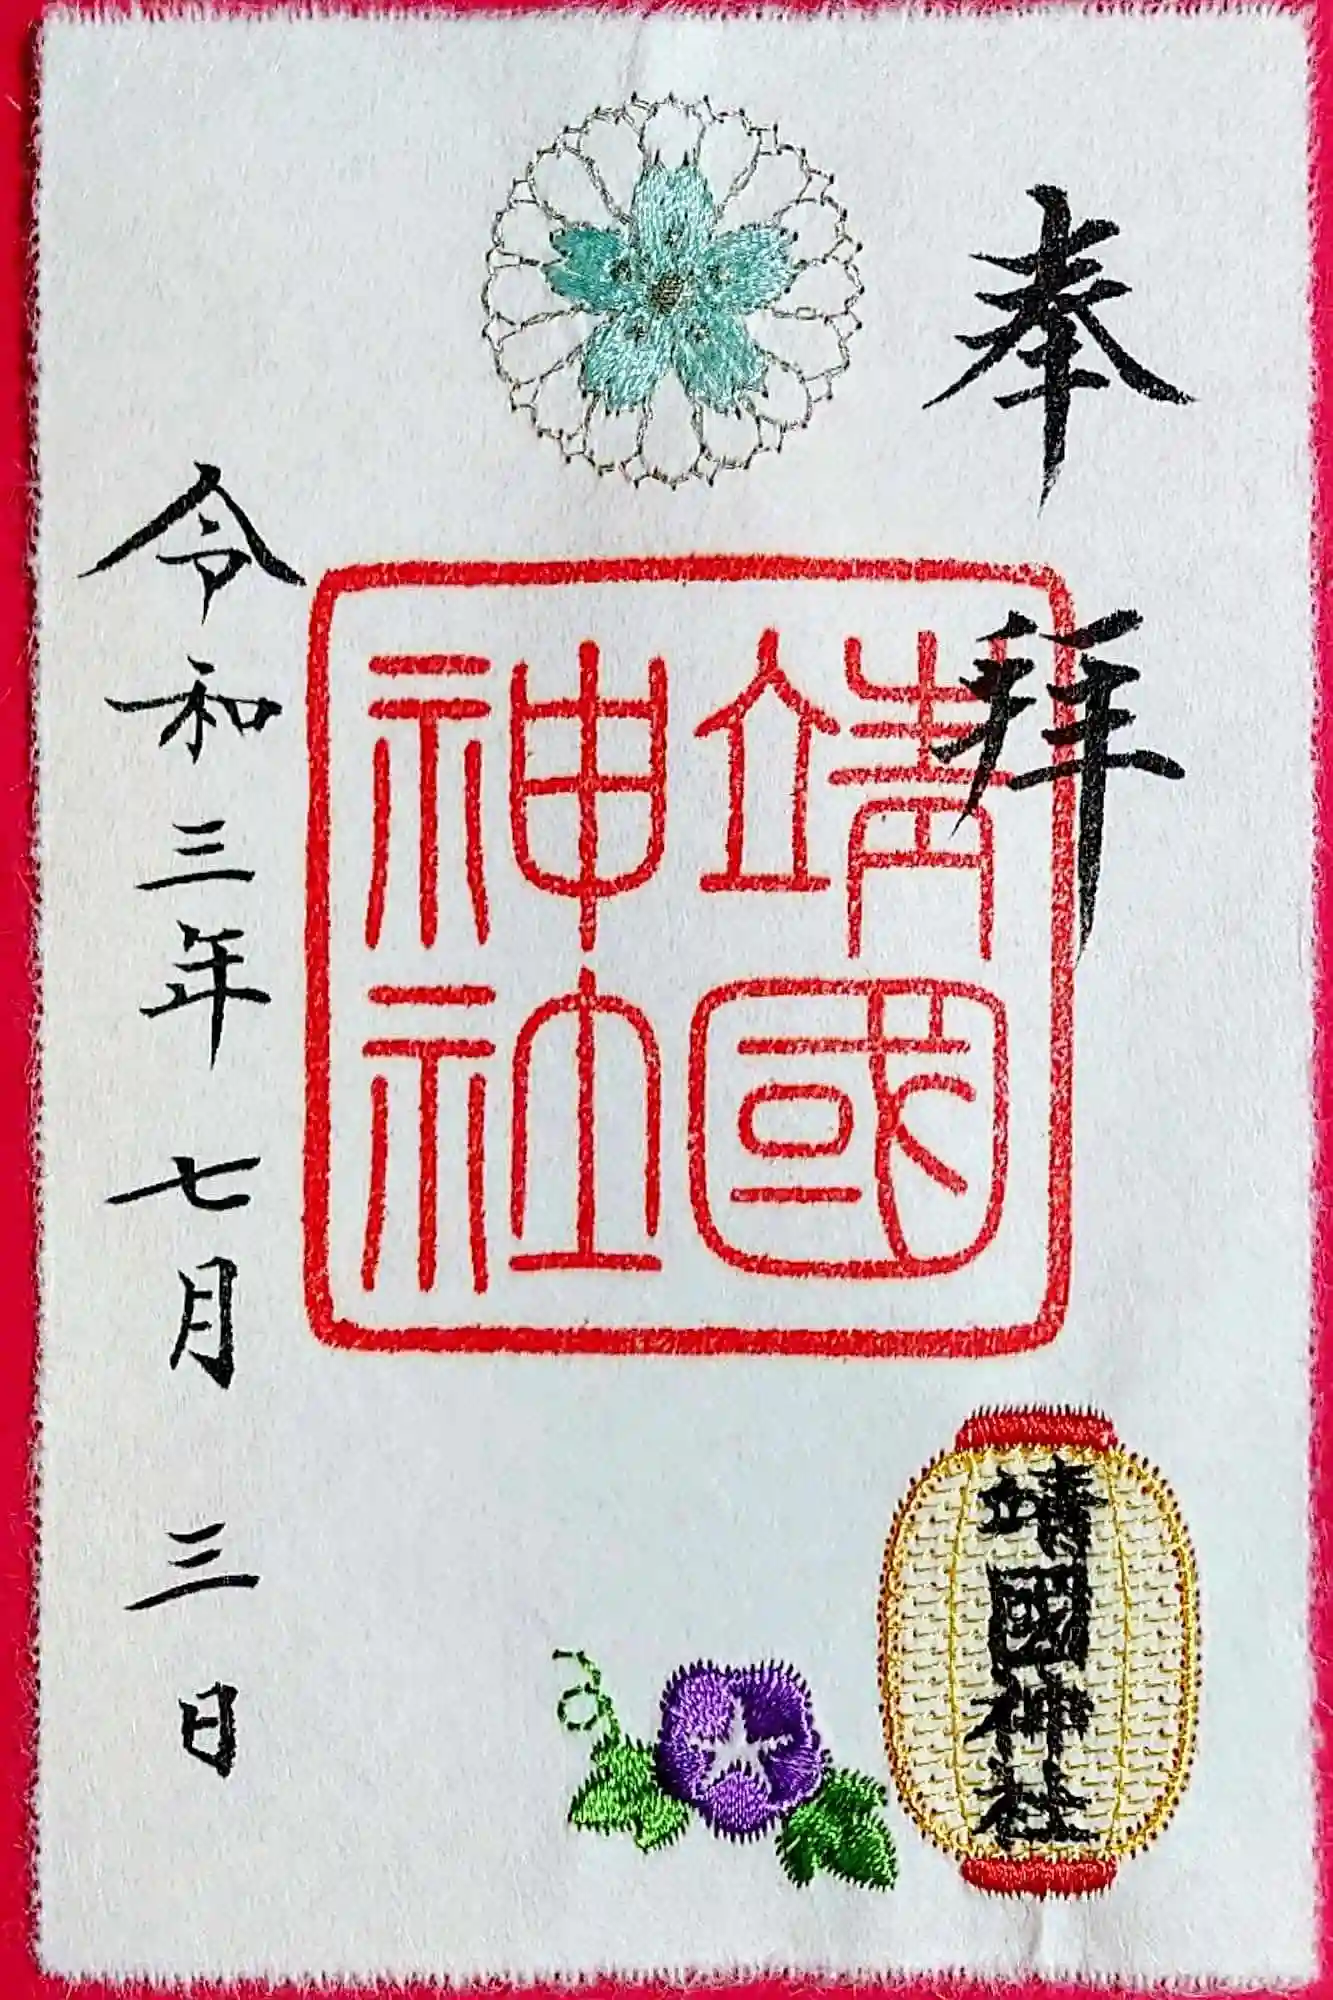 奉拝
靖國神社
令和三年七月三日
靖國神社